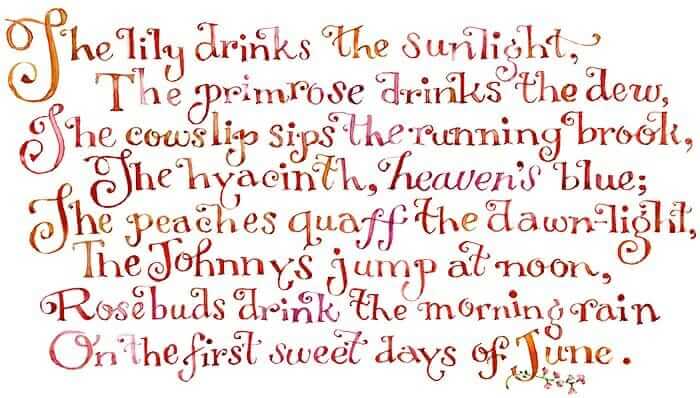 The lily drinks the sunlight,
The primrose drinks the dew,
The cowslip sips the running brook,
The hyacinth, heaven's blue;
The peaches quaff the dawn-light,
The Johnnys jump at noon,
Rosebuds drink the morning rain
On the first sweet days of June.